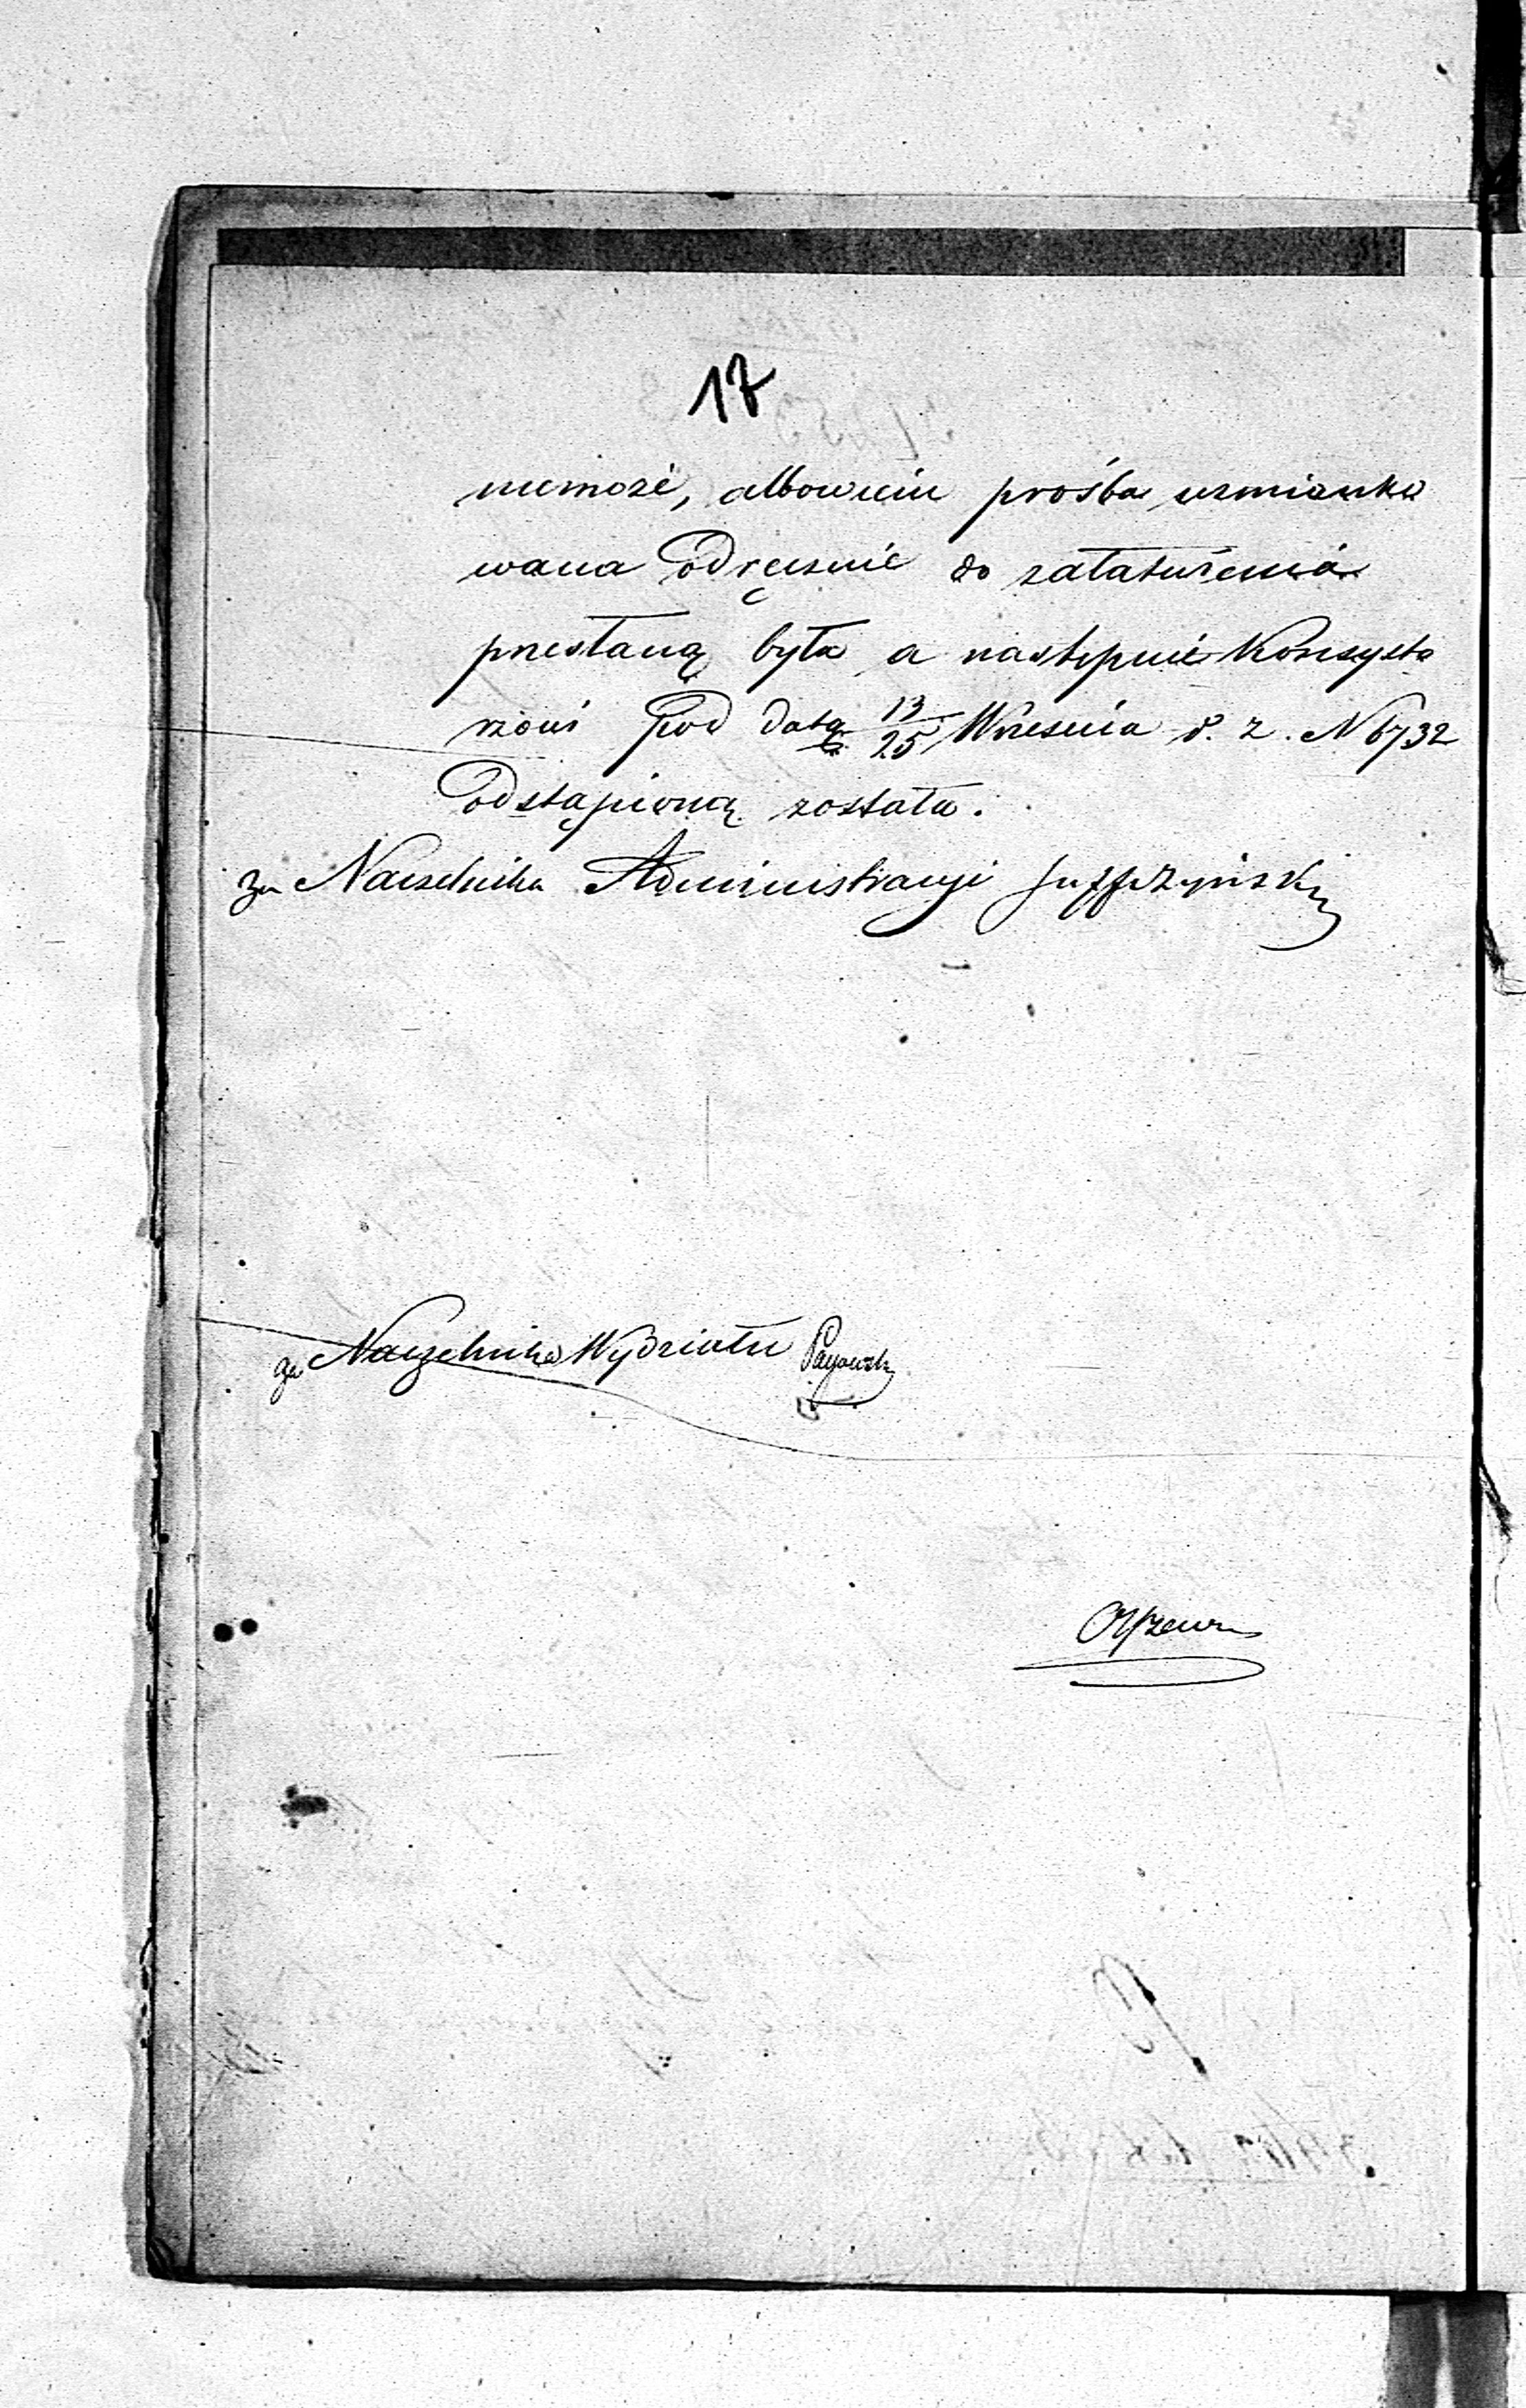 17
niemoże, albowiem prośba wzmianko
wana odręcznie do załatwienia
przesłaną była a następnie Konsysto
rzowi pod datą 13/25 Września r. z. N 6732
odstąpioną została.
za Naczelnika Administracyi
za Naczelnika Wydziału